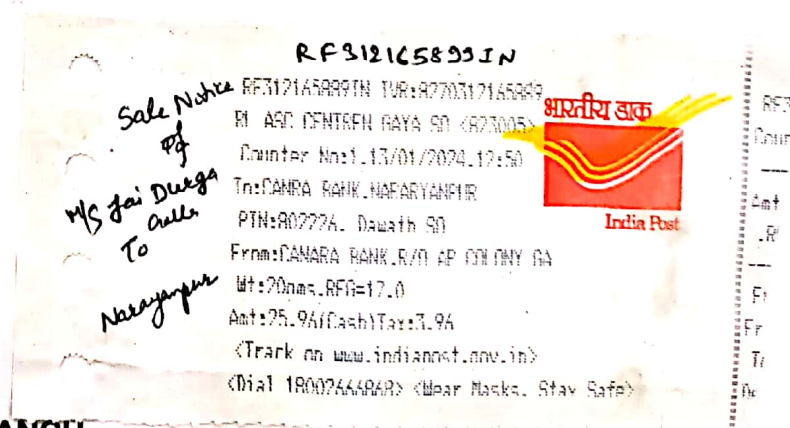 RF312165899IN
Sale Notice
of
M/S Jai Durga
To
Narayanpur
RF312165899IN IVR:8270312165899
RL ABC CENTREN GAYA SO <823005>
Counter No:1,13/01/2024,12:50
To:CANRA BANK,NARARYANPUR
PIN:802226, Dawath SO
From:CANARA BANK,R/O AP COLONY GA
Wt:20gms,REG=17.0
Amt:25.96(Cash)Tax:3.96
<Track on www.indiapost.gov.in>
<Dial 18002666868> <Wear Masks, Stay Safe>
भारतीय डाक
India Post
RF3
Coun
Amt
Fr